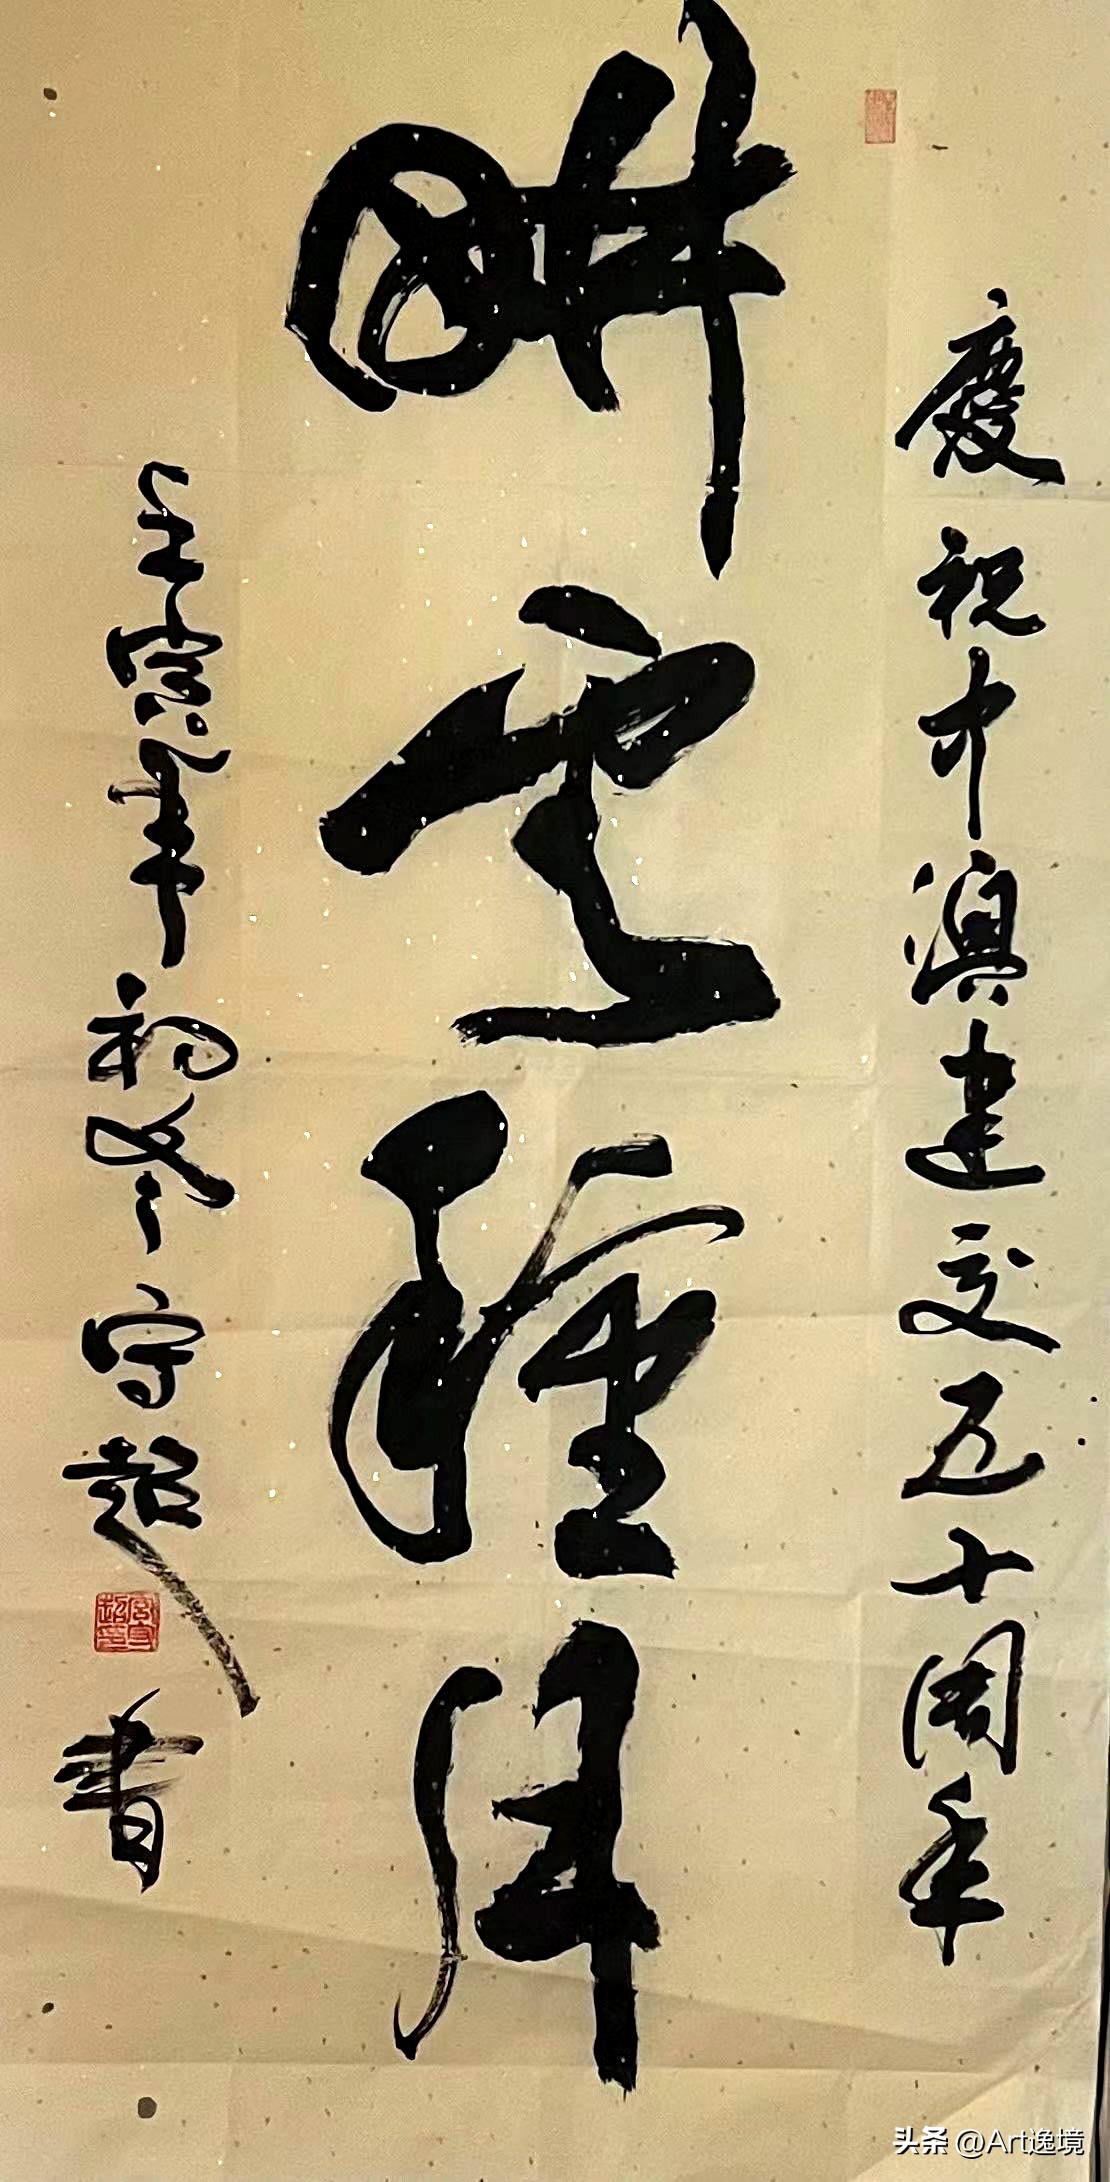 慶祝中澳建交五十周年
耕雲種月
壬寅年初冬守超書
头条 @Art逸境